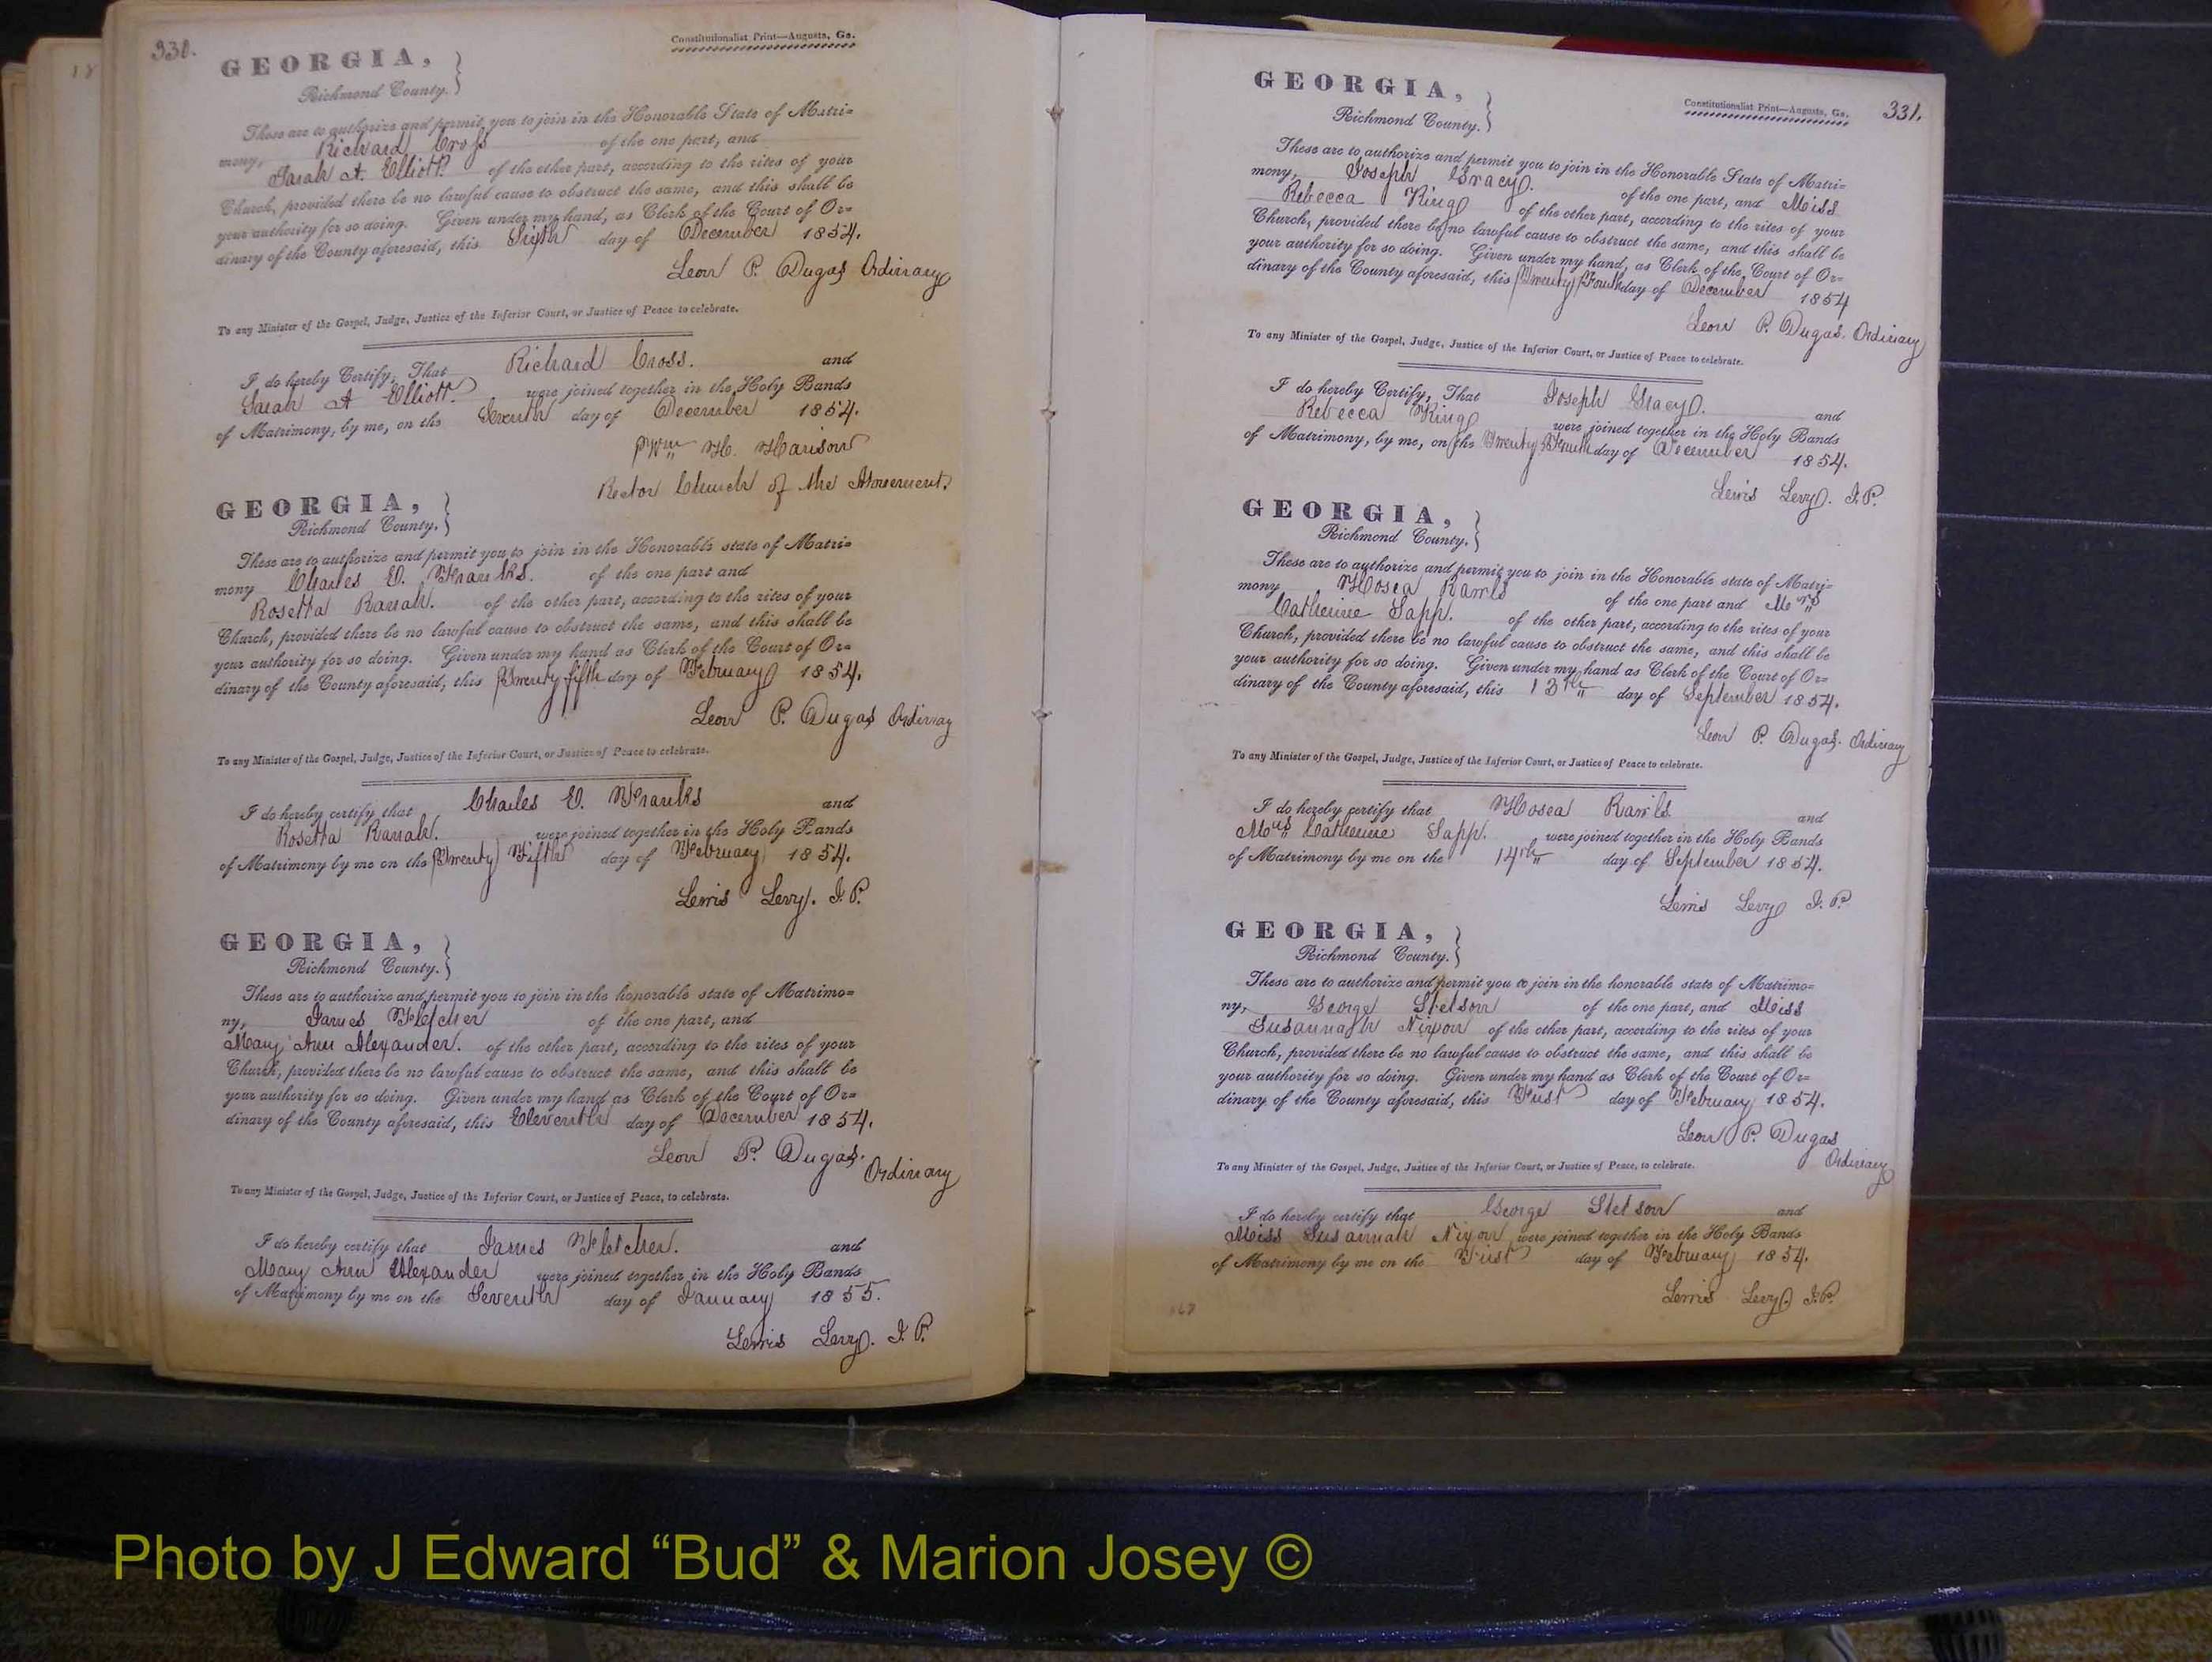 330.
Constitutionalist Print—Augusta, Ga.
GEORGIA,
Richmond County.
These are to authorize and permit you to join in the Honorable State of Matri=
mony, Richard Cross of the one part, and
Sarah A. Elliott of the other part, according to the rites of your
Church, provided there be no lawful cause to obstruct the same, and this shall be
your authority for so doing. Given under my hand, as Clerk of the Court of Or=
dinary of the County aforesaid, this Sixth day of December 1854.
Leon P. Dugas Ordinary
To any Minister of the Gospel, Judge, Justice of the Inferior Court, or Justice of Peace to celebrate.
I do hereby Certify, That Richard Cross. and
Sarah A Elliott. were joined together in the Holy Bands
of Matrimony, by me, on the Seventh day of December 1854.
Wm H. Harison
Rector Church of the Atonement.
GEORGIA,
Richmond County.
These are to authorize and permit you to join in the Honorable state of Matri=
mony Charles E. Franks. of the one part and
Rosetta Rarrah. of the other part, according to the rites of your
Church, provided there be no lawful cause to obstruct the same, and this shall be
your authority for so doing. Given under my hand as Clerk of the Court of Or=
dinary of the County aforesaid, this Twenty fifth day of February 1854.
Leon P. Dugas Ordinary
To any Minister of the Gospel, Judge, Justice of the Inferior Court, or Justice of Peace to celebrate.
I do hereby certify that Charles E. Franks and
Rosetta Rarrah. were joined together in the Holy Bands
of Matrimony by me on the Twenty Fifth day of February 1854.
Lewis Levy. J. P.
GEORGIA,
Richmond County.
These are to authorize and permit you to join in the honorable state of Matrimo=
ny, James Fletcher of the one part, and
Mary Ann Alexander. of the other part, according to the rites of your
Church, provided there be no lawful cause to obstruct the same, and this shall be
your authority for so doing. Given under my hand as Clerk of the Court of Or=
dinary of the County aforesaid, this Eleventh day of December 1854.
Leon P. Dugas.
Ordinary
To any Minister of the Gospel, Judge, Justice of the Inferior Court, or Justice of Peace, to celebrate.
I do hereby certify that James Fletcher. and
Mary Ann Alexander were joined together in the Holy Bands
of Matrimony by me on the Seventh day of January 1855.
Lewis Levy. J. P.
331.
Constitutionalist Print—Augusta, Ga.
GEORGIA,
Richmond County.
These are to authorize and permit you to join in the Honorable State of Matri=
mony, Joseph Gracy. of the one part, and Miss
Rebecca King of the other part, according to the rites of your
Church, provided there be no lawful cause to obstruct the same, and this shall be
your authority for so doing. Given under my hand, as Clerk of the Court of Or=
dinary of the County aforesaid, this Twenty Fourth day of December 1854
Leon P. Dugas. Ordinary
To any Minister of the Gospel, Judge, Justice of the Inferior Court, or Justice of Peace to celebrate.
I do hereby Certify, That Joseph Gracy. and
Rebecca King were joined together in the Holy Bands
of Matrimony, by me, on the Twenty Fourth day of December 1854.
Lewis Levy. J. P.
GEORGIA,
Richmond County.
These are to authorize and permit you to join in the Honorable state of Matri-
mony Hosea Rawls of the one part and Mrs
Catherine Sapp. of the other part, according to the rites of your
Church, provided there be no lawful cause to obstruct the same, and this shall be
your authority for so doing. Given under my hand as Clerk of the Court of Or=
dinary of the County aforesaid, this 13th day of September 1854.
Leon P. Dugas. Ordinary
To any Minister of the Gospel, Judge, Justice of the Inferior Court, or Justice of Peace to celebrate.
I do hereby certify that Hosea Rawls. and
Mrs Catherine Sapp. were joined together in the Holy Bands
of Matrimony by me on the 14th day of September 1854.
Lewis Levy J. P.
GEORGIA,
Richmond County.
These are to authorize and permit you to join in the honorable state of Matrimo=
ny, George Stetson of the one part, and Miss
Susannah Nixon of the other part, according to the rites of your
Church, provided there be no lawful cause to obstruct the same, and this shall be
your authority for so doing. Given under my hand as Clerk of the Court of Or=
dinary of the County aforesaid, this First day of February 1854.
Leon P. Dugas
Ordinary
To any Minister of the Gospel, Judge, Justice of the Inferior Court, or Justice of Peace, to celebrate.
I do hereby certify that George Stetson and
Miss Susannah Nixon were joined together in the Holy Bands
of Matrimony by me on the First day of February 1854.
Lewis Levy J. P.
Photo by J Edward “Bud” & Marion Josey ©